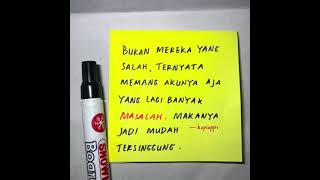 BUKAN MEREKA YANG
SALAH, TERNYATA
MEMANG AKUNYA AJA
YANG LAGI BANYAK
MASALAH. MAKANYA
JADI MUDAH
TERSINGGUNG.
SNOWMAN